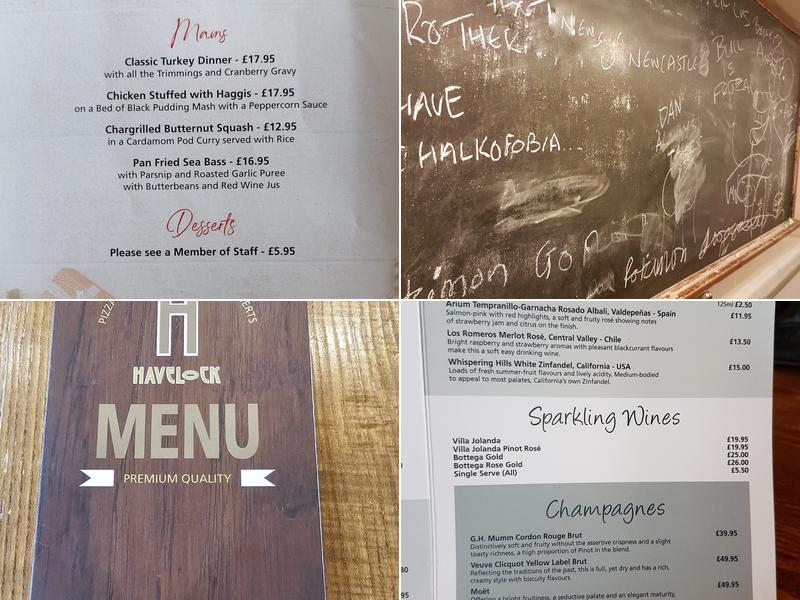 Mains
Classic Turkey Dinner - £17.95
with all the Trimmings and Cranberry Gravy
Chicken Stuffed with Haggis - £17.95
on a Bed of Black Pudding Mash with a Peppercorn Sauce
Chargrilled Butternut Squash - £12.95
in a Cardamom Pod Curry served with Rice
Pan Fried Sea Bass - £16.95
with Parsnip and Roasted Garlic Puree
with Butterbeans and Red Wine Jus
Desserts
Please see a Member of Staff - £5.95
NEWS
NEWCASTLE
BULL
IS
HAVE
DAN
HALKOFOBIA...
GO
H
HAVELOCK
MENU
PREMIUM QUALITY
Arium Tempranillo-Garnacha Rosado Albali, Valdepeñas - Spain 125ml £2.50
Salmon-pink with red highlights, a soft and fruity rosé showing notes £11.95
of strawberry jam and citrus on the finish.
Los Romeros Merlot Rosé, Central Valley - Chile £13.50
Bright raspberry and strawberry aromas with pleasant blackcurrant flavours
make this a soft easy drinking wine.
Whispering Hills White Zinfandel, California - USA £15.00
Loads of fresh summer-fruit flavours and lively acidity. Medium-bodied
to appeal to most palates, California's own Zinfandel.
Sparkling Wines
Villa Jolanda £19.95
Villa Jolanda Pinot Rosé £19.95
Bottega Gold £25.00
Bottega Rose Gold £26.00
Single Serve (All) £5.50
Champagnes
G.H. Mumm Cordon Rouge Brut £39.95
Distinctively soft and fruity without the assertive crispness and a slight
toasty richness, a high proportion of Pinot in the blend.
Veuve Clicquot Yellow Label Brut £49.95
Reflecting the traditions of the past, this is full, yet dry and has a rich,
creamy style with biscuity flavours.
Moët £49.95
Offering a bright fruitiness, a seductive palate and an elegant maturity.